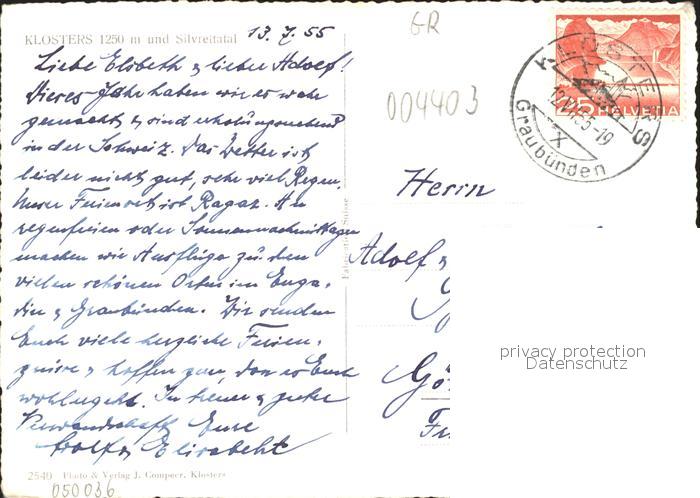 KLOSTERS 1250 m und Silvrettatal
13.7.55
Liebe Elsbeth & lieber Adolf!
Dieses Jahr haben wir es wahr
gemacht & sind erholungsuchend
in der Schweiz. Das Wetter ist
leider nicht gut, sehr viel Regen.
Unser Ferienort ist Ragaz. An
regenfreien oder Sonnennachmittagen
machen wir Ausflüge zu den
vielen schönen Orten im Enga-
din & Graubünden. Wir senden
Euch viele herzliche Ferien-
grüsse & hoffen gern, dass es Euch
wohlergeht. In treuer & guter
Verwandschaft Eure
Adolf & Elisabeht
2549 Photo & Verlag J. Compeer, Klosters
050036
GR
004403
25 HELVETIA
KLOSTERS
Graubünden
Suisse
Herrn
Adolf &
privacy protection
Datenschutz